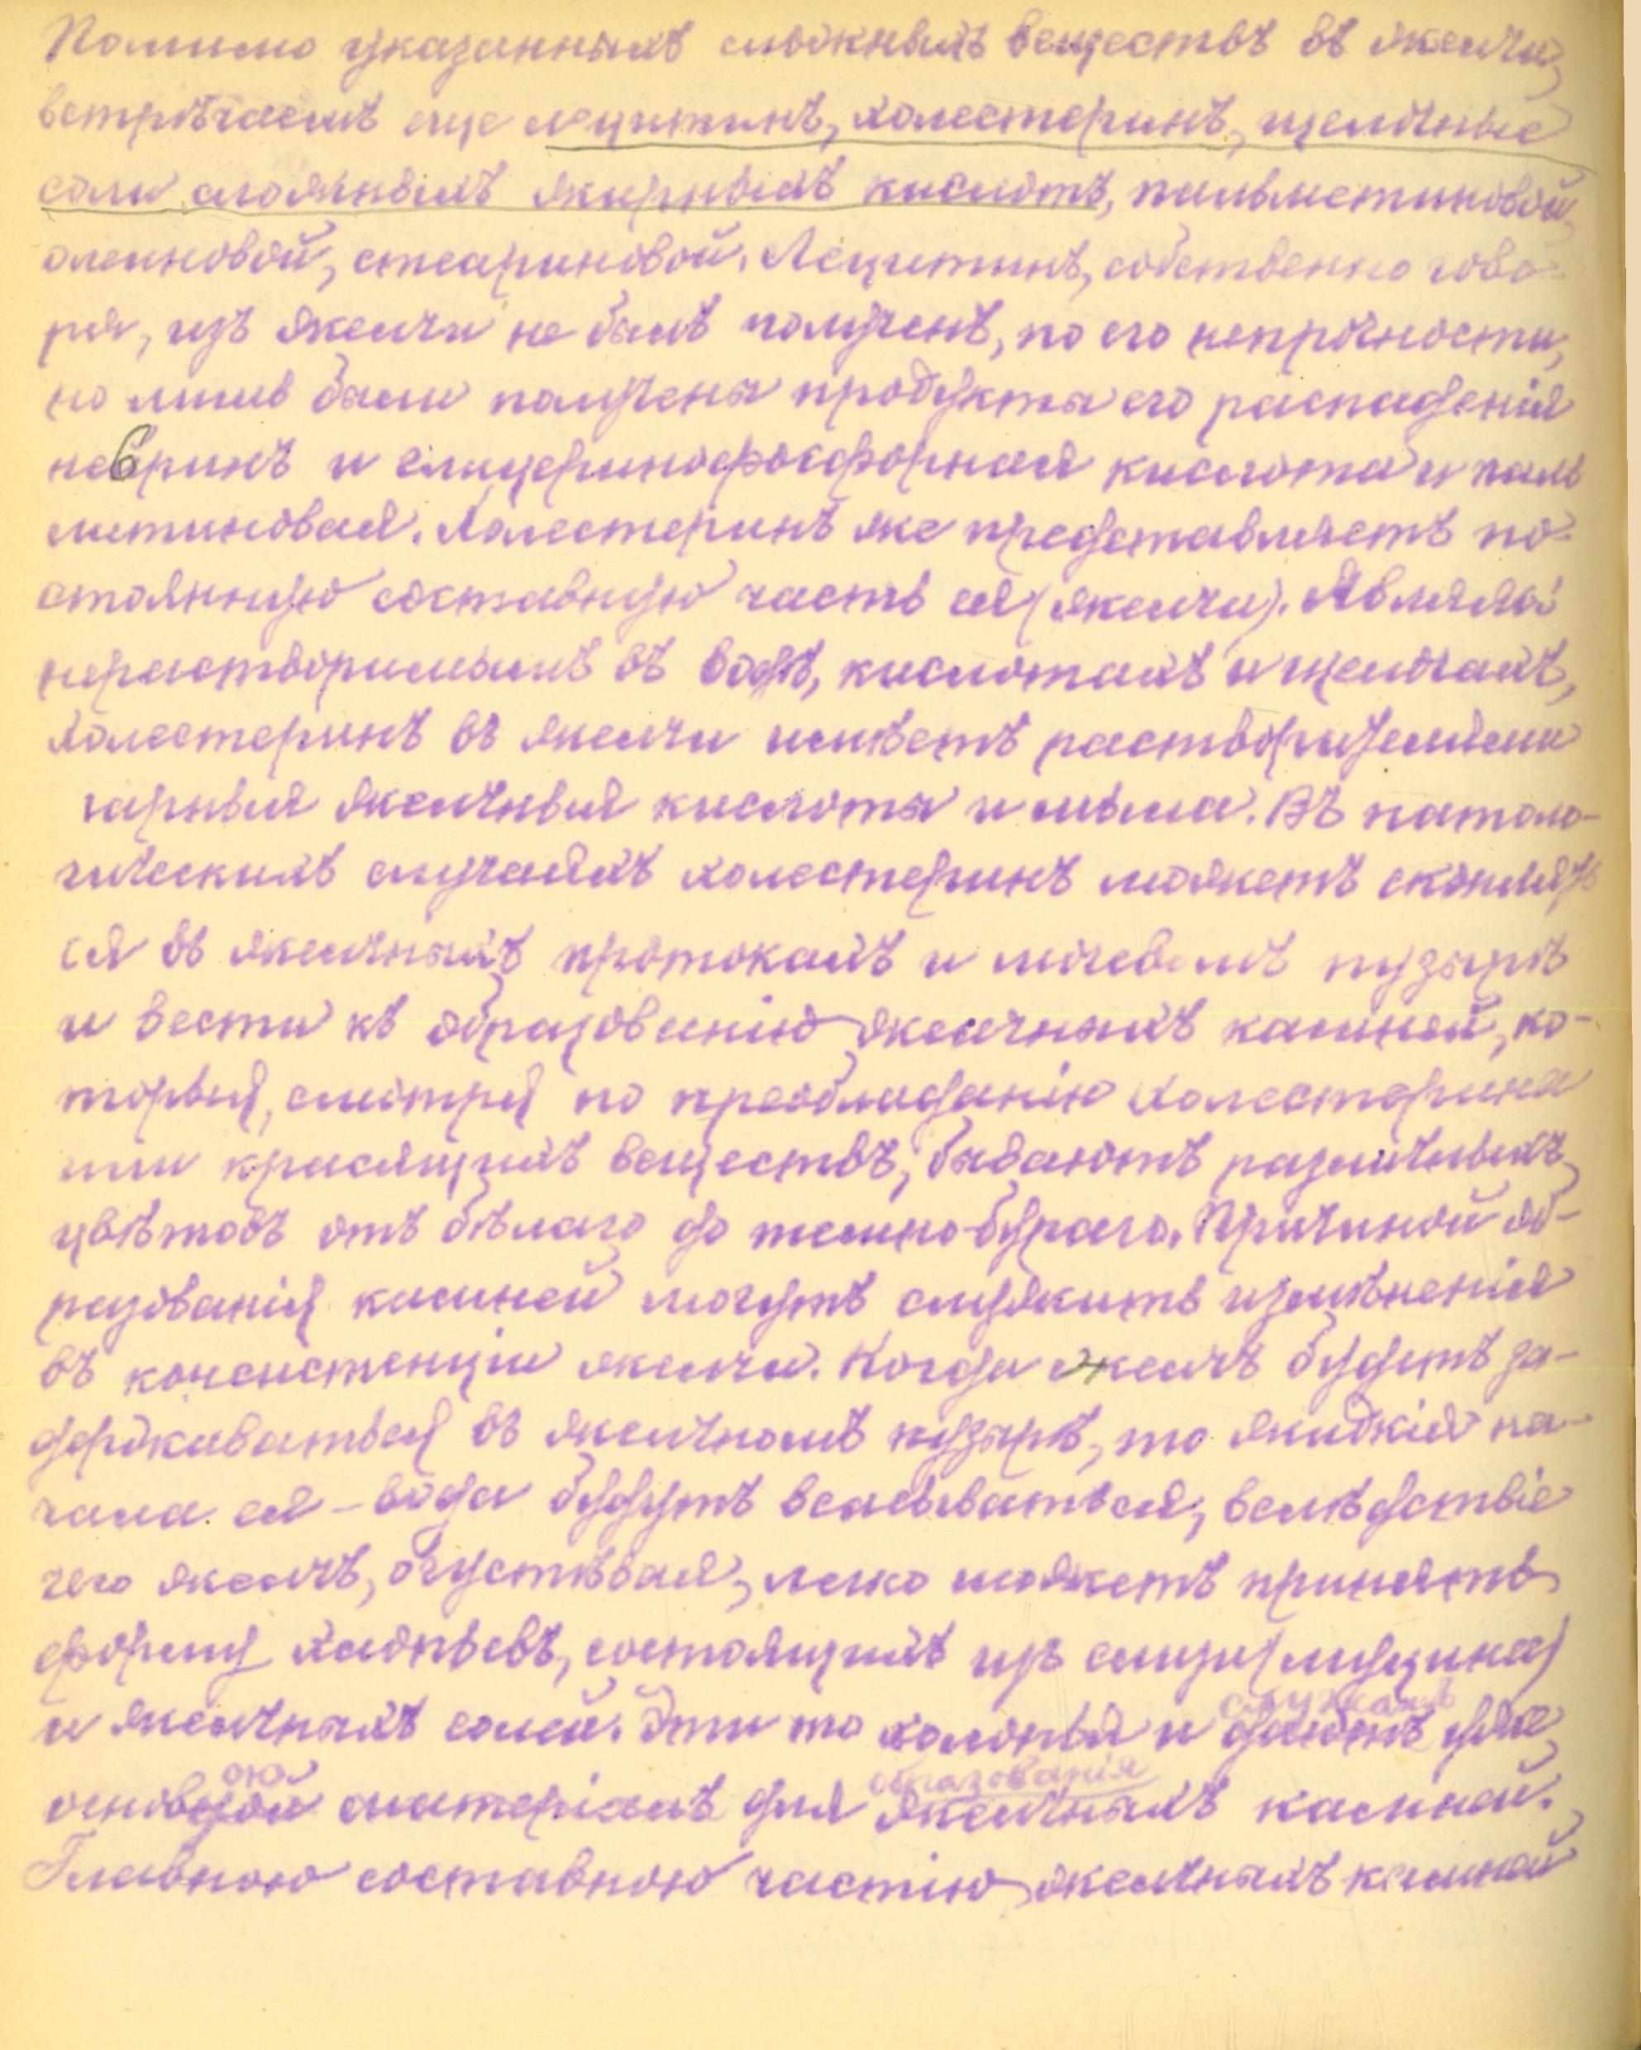 Помимо указанныхъ сложныхъ веществъ въ желчи,
встрѣчаемъ еще лецитинъ, холестеринъ, щелочные
соли сложныхъ жирныхъ кислотъ, пальметиновой,
олеиновой, стеариновой. Лецитинъ, собственно гово-
ря, изъ желчи не былъ полученъ, по его непрочности,
но лишь были получены продукты его распаденія
невринъ и глицеринофосфорная кислота и паль
митиновая. Холестеринъ же представляетъ по-
стоянную составную часть ея (желчи). Являясь
нерастворимымъ въ водѣ, кислотахъ и щелочахъ,
холестеринъ въ желчи имѣетъ растворителями
парныя желчныя кислоты и мыла. Въ патоло-
гическихъ случаяхъ холестеринъ можетъ скоплять
ся въ желчныхъ протокахъ и мочевомъ пузырѣ
и вести къ образованію желчныхъ камней, ко-
торыя, смотря по преобладанію холестерина
или красящихъ веществъ, бываютъ различныхъ
цвѣтовъ отъ бѣлаго до темно-бураго. Причиной об-
разованія камней могутъ служить измѣненія
въ консистенціи желчи. Когда желчь будетъ за-
держиваться въ желчномъ пузырѣ, то жидкія на-
чала ея - вода будутъ всасываться, вслѣдствіе
чего желчь, огустѣвая, легко можетъ принять
форму хлопьевъ, состоящихъ изъ слизи (муцина)
служатъ
и желчныхъ солей. Эти то хлопья и даютъ
ою образованія
основной матеріалъ для желчныхъ камней.
Главною составною частію желчныхъ камней